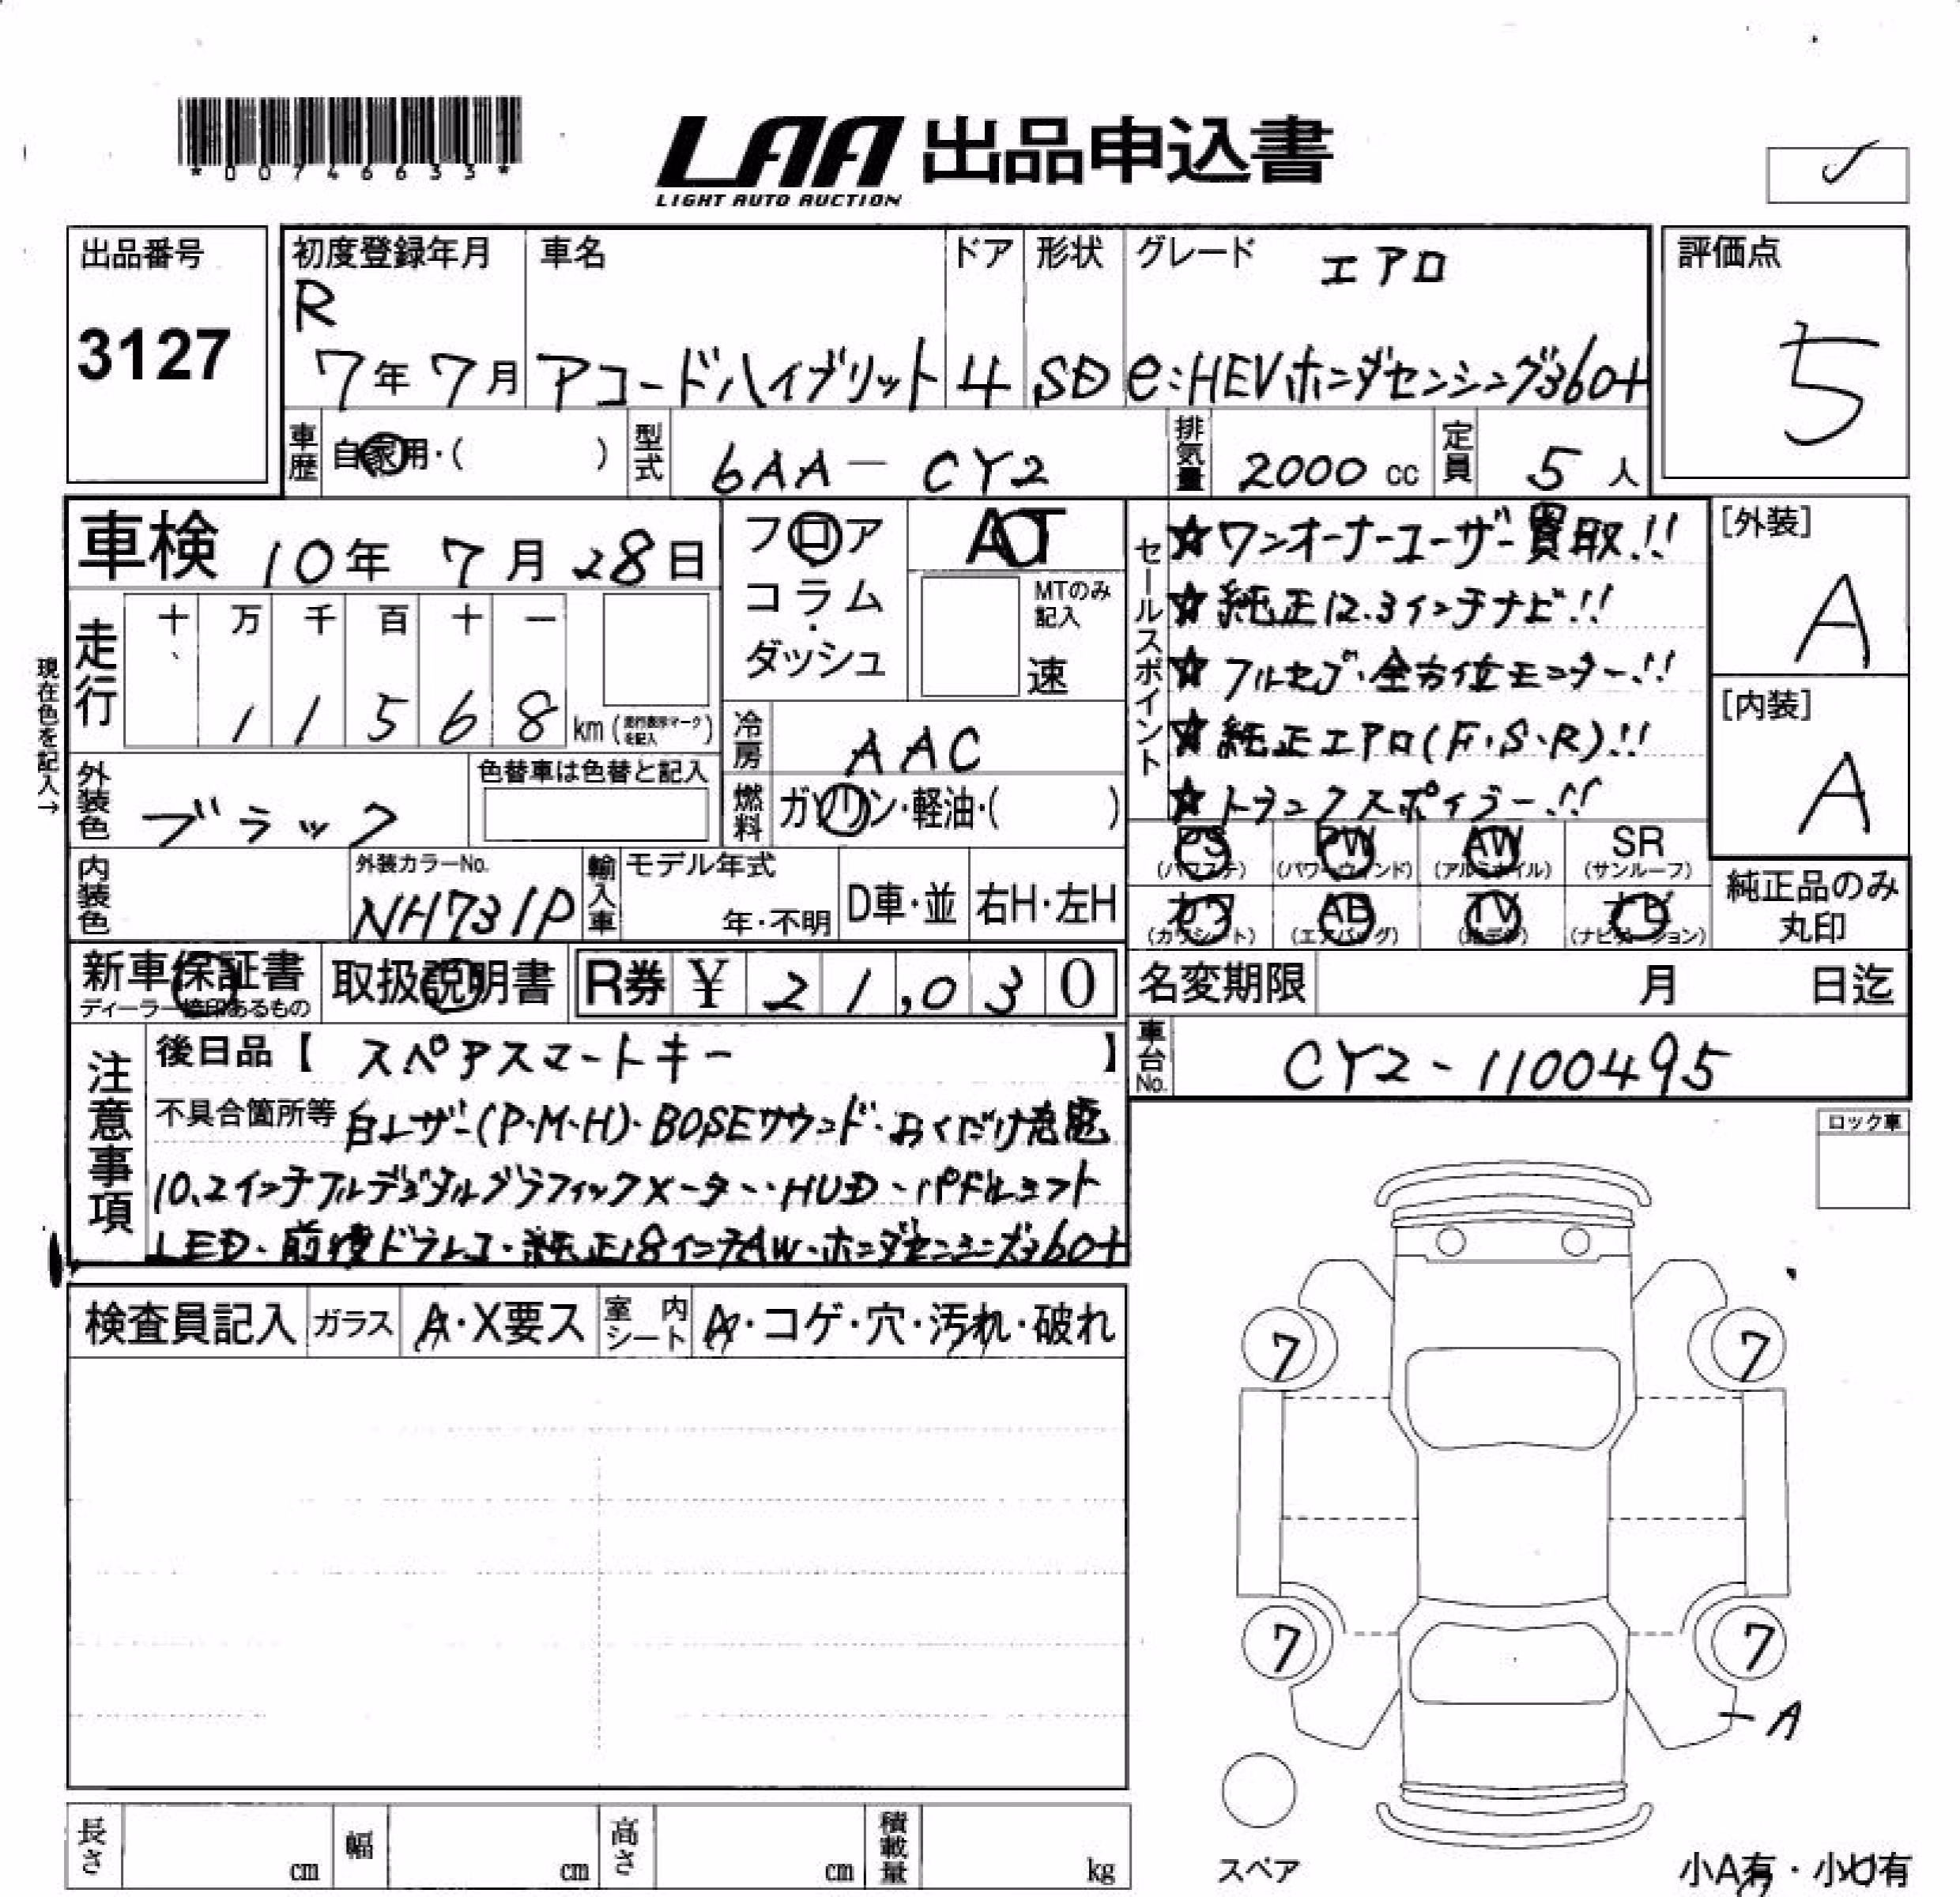 *00746633*
LAA 出品申込書
LIGHT AUTO AUCTION
出品番号
3127
初度登録年月
R
7年 7月
車名
アコードハイブリット
ドア
4
形状
SD
グレード エアロ
e:HEVホンダセンシング360+
評価点
5
車歴 自家用・( )
型式 6AA－CY2
排気量 2000 cc
定員 5 人
車検 10年 7月 28日
走行 十 万 千 百 十 一
1 1 5 6 8 km (走行表示マークを記入)
現在色を記入→
フロア
コラム
・
ダッシュ
AT
MTのみ
記入
速
冷房 AAC
燃料 ガソリン・軽油・( )
外装色 ブラック
色替車は色替と記入
内装色
外装カラーNo.
NH731P
輸入車
モデル年式
年・不明
D車・並
右H・左H
セールスポイント
☆ワンオーナーユーザー買取!!
☆純正12.3インチナビ!!
☆フルセグ・全方位モニター!!
☆純正エアロ(F・S・R)!!
☆トランクスポイラー!!
[外装]
A
[内装]
A
PS (パワステ)
PW (パワーウィンド)
AW (アルミホイル)
SR (サンルーフ)
カワ (カワシート)
AB (エアバッグ)
TV (地デジ)
ナビ (ナビゲーション)
純正品のみ
丸印
新車保証書
ディーラー捺印あるもの
取扱説明書
R券 ¥ 21,030
名変期限 月 日迄
車台No. CY2-1100495
注意事項
後日品【 スペアスマートキー 】
不具合箇所等 白レザー(P・M・H)・BOSEサウンド・おくだけ充電
10.2インチフルデジタルグラフィックメーター・HUD・パドルシフト
LED・前後ドラレコ・純正18インチAW・ホンダセンシング360+
ロック車
検査員記入
ガラス A・X要ス
室内シート A・コゲ・穴・汚れ・破れ
7 7
7 7
A
スペア
小A有・小U有
長さ cm
幅 cm
高さ cm
積載量 kg